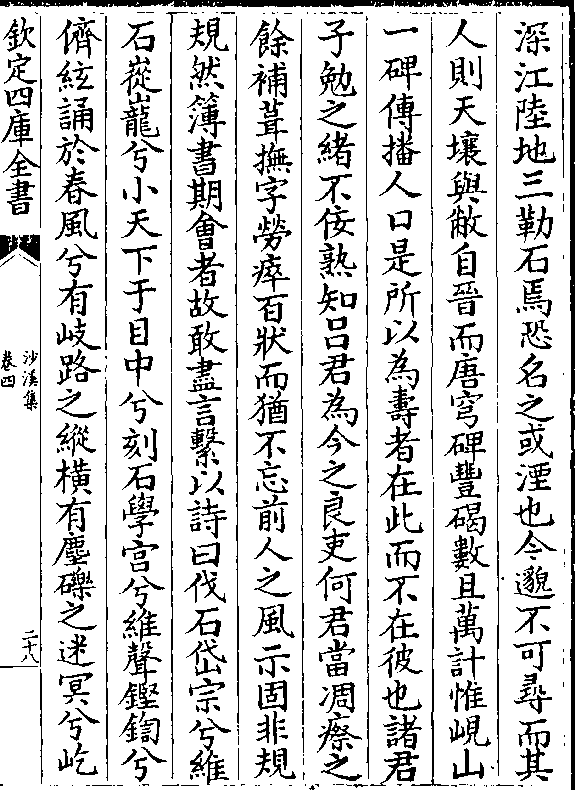 深江陸地三勒石焉恐名之或湮也今邈不可尋而其
人則天壤與敝自晉而唐穹碑豐碣數且萬計惟峴山
一碑傳播人口是所以為壽者在此而不在彼也諸君
子勉之緒不佞熟知吕君為今之良吏何君當凋瘵之
餘補葺撫字勞瘁百狀而猶不忘前人之風示固非規
規然簿書期會者故敢盡言繫以詩曰伐石岱宗兮維
石嵸巃兮小天下于目中兮刻石學宫兮維聲鏗鍧兮
儕絃誦於春風兮有岐路之縱横有塵礫之迷冥兮屹
欽定四庫全書
沙溪集
卷四
二十八